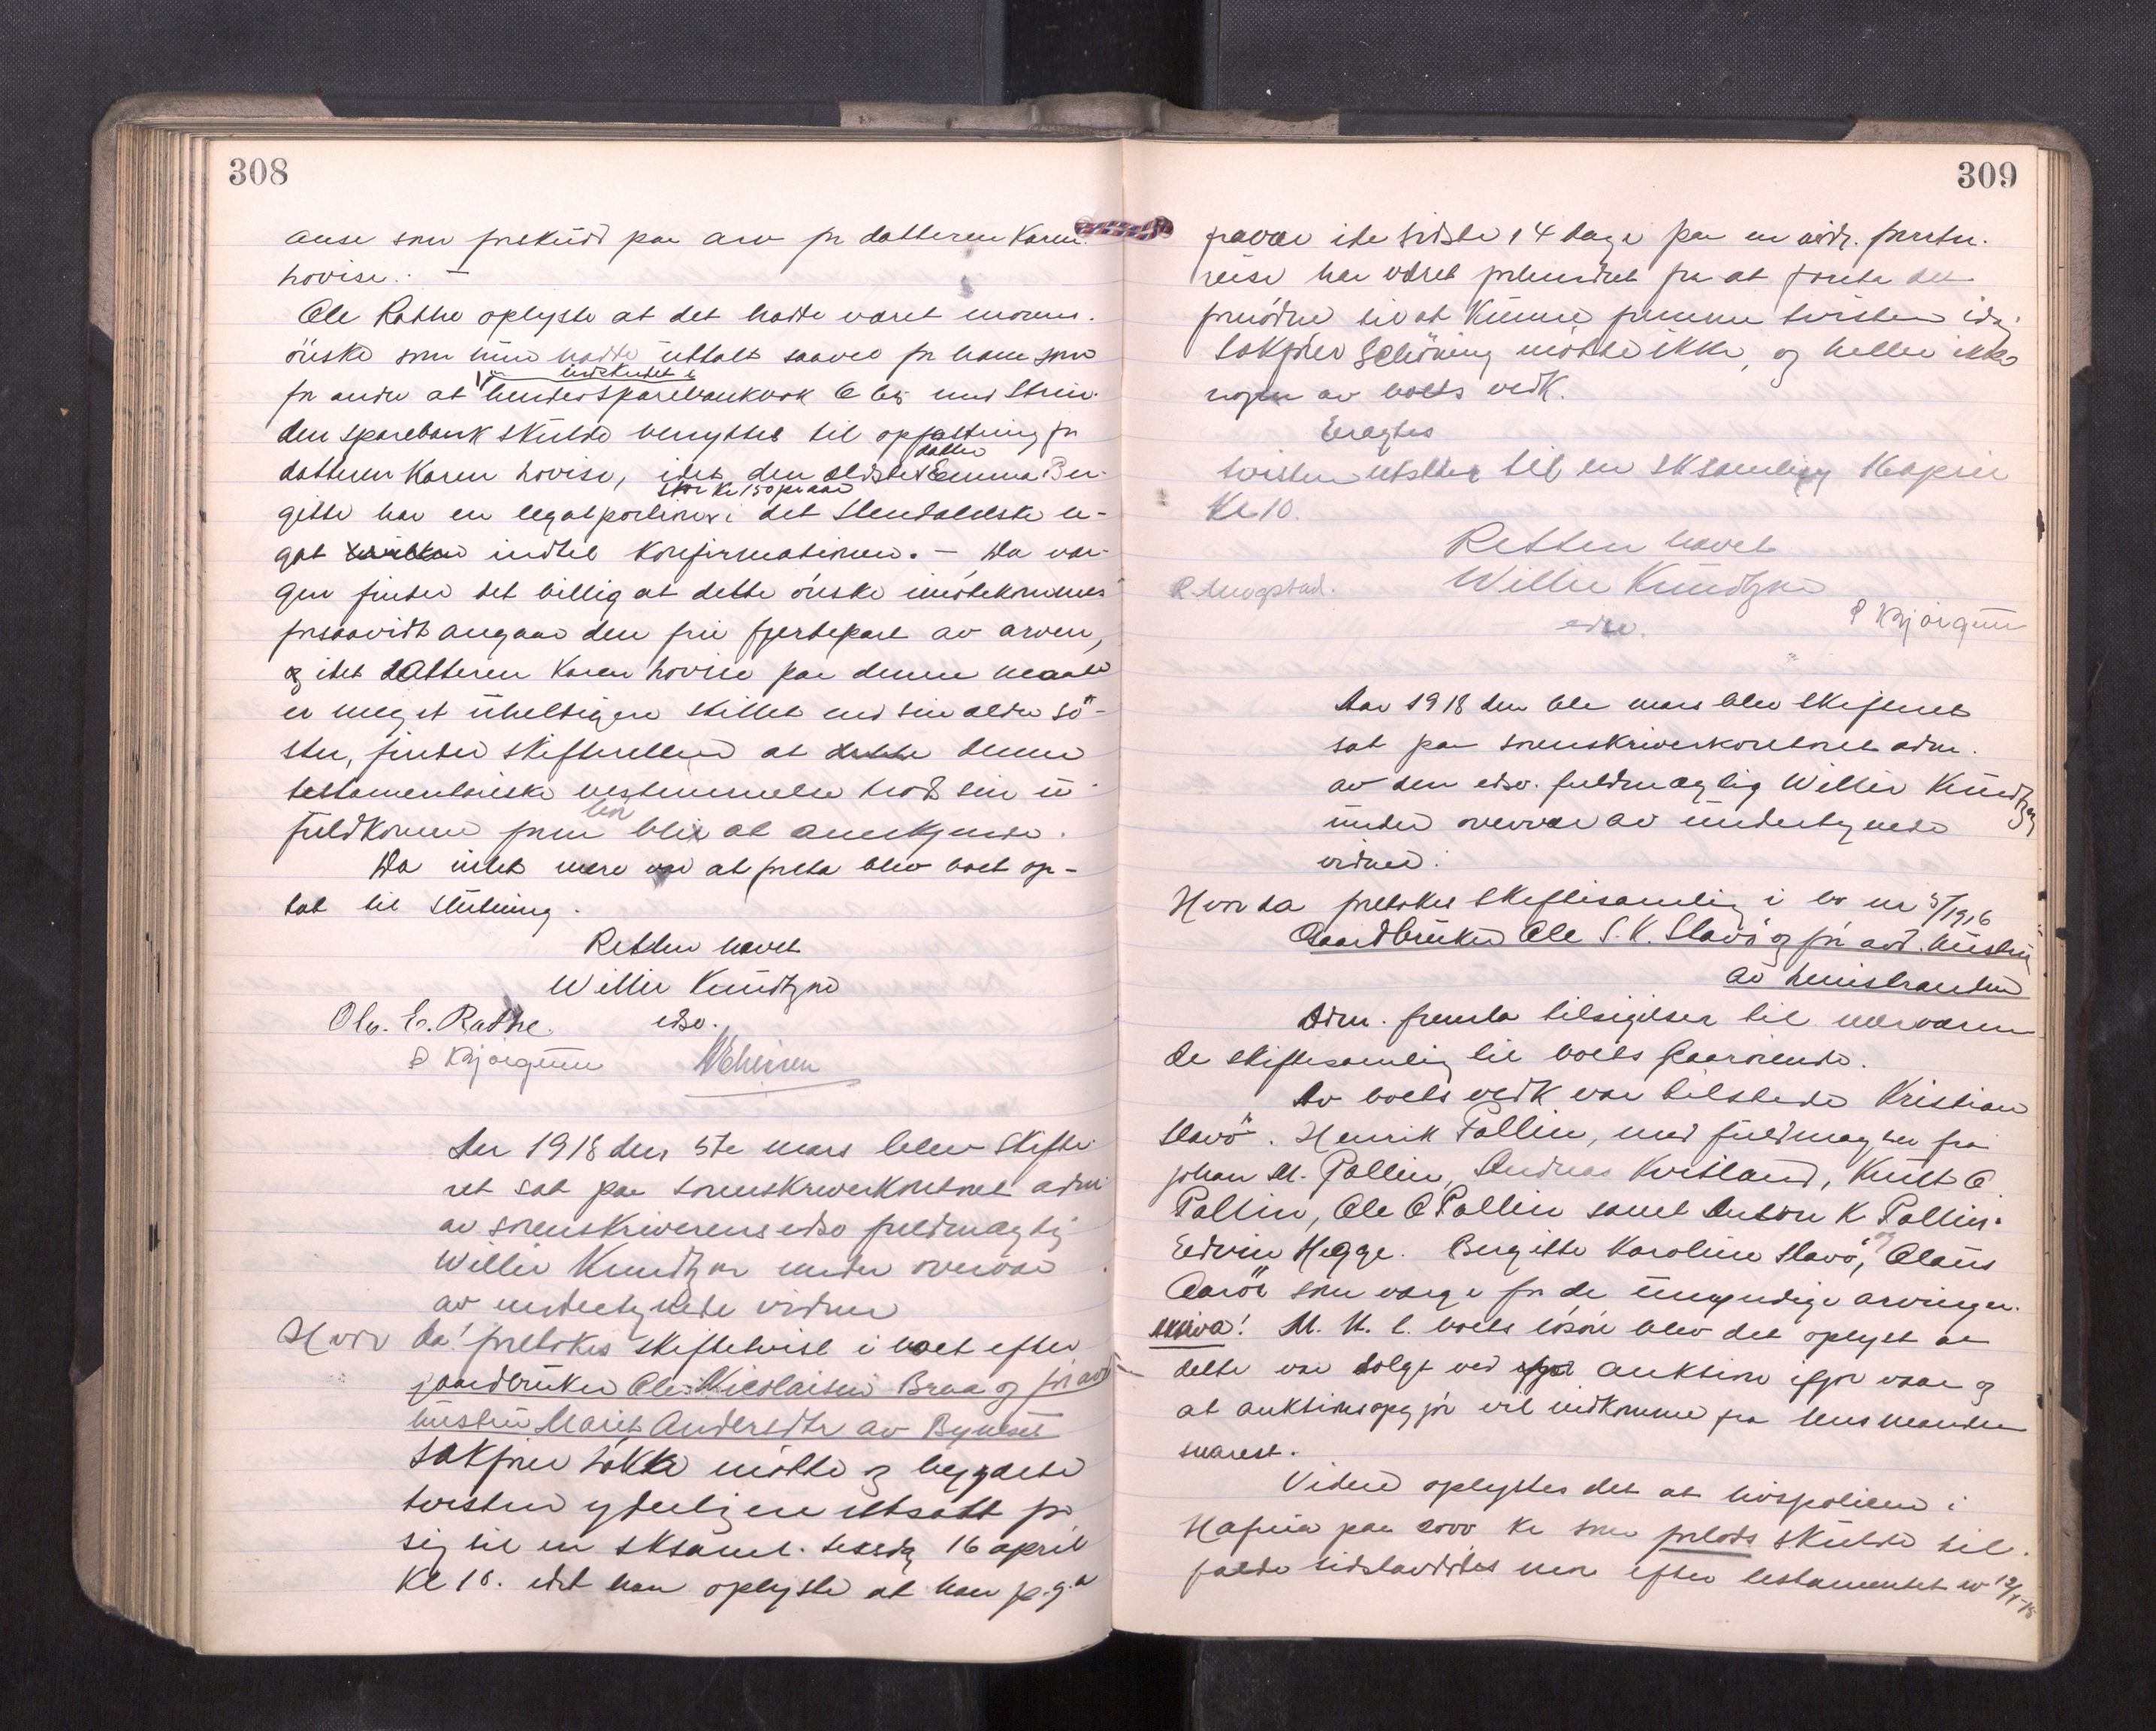 308
anse som forskud paa arv for datteren Karen
Lovise. —
Ole Rathe oplyste at det hadde været morens
önske som hun hadde uttalt saavel for ham som
indskudet i
for andre at hendes sparebankbok C 63 med Strin-
den sparebank skulde benyttes til opfostring for
datter
datteren Karen Lovise, idet den ældste Emma Ber-
stor kr 150 pr aar
gitte har en legatportion i det Stendalske le-
gat indtil konfirmationen. — Da ver-
gen finder det billig at dette önske imötekommes
forsaavidt angaar den frie fjerdepart av arven,
og idet datteren Karen Lovise paa denne maate
er meget uheldigere stillet end sin ældre sö-
ster, finder skifteretten at dette denne
testamentariske bestemmelse trods sin u-
fuldkomne form bör blir at anerkjende.
Da intet mere var at foreta blev boet op-
tat til slutning.
Retten hævet
Willie Kundtzon
Ole E. Rathe. edsv.
P Bjørgum
Aar 1918 den 5te mars blev skifte-
ret sat paa sorenskriverkontoret adm.
av sorenskriverens edsv fuldmægtig
Willie Kundtzon under overvær
av undertegnede vidner
Hvor da! foretokes skiftetvist i boet efter
gaardbruker Ole Nicolaisen Braa og forav-
hustru Marit Andersdtr av Bynesset
Sakförer Lökke mötte og begjærte
tvisten yderligere utsatt for
sig til en sksaml. tirsdag 16 april
kl 10. idet han oplyste at han p.g.a
309
fravær i de sidste 14 dage paa en forretn.
reise har været forhindret fra at foreta det
fornödne til at kunne fremme tvisten idag.
Sakförer Schöning mötte ikke, og heller ikke
nogen av boets vedk.
Eragtes
tvisten utsættes til en sksamling 16 april
Kl 10.
Retten hævet
Willie Kundtzon
edsv.
P Bjørgum
Aar 1918 den 6te mars blev skifteret
sat paa sorenskriverkontoret adm.
av den edsv. fuldmægtig Willie Kundtzon
under overvær av undertegnede
vidner.
Hvor da foretokes skiftesamling i bo nr 5/1916
Gaardbruker Ole S. K. Slavö og för avd. hustru
av Leinstranden
Adm. fremla tilsigelser til nærværen-
de skiftesamling til boets paarörende.
Av boets vedk var tilstede Kristian
Slavö. Henrik Pallin, med fuldmagter fra
Johan M. Pallin, Andreas Kvitland, Knut O
Pallin, Ole O Pallin samt Anton K Pallin.
Edvin Hegge. Bergitte Karoline Slavö, og Claus
Aaröe som verge for de umyndige arvinger.
M. H. t. boets lösöre blev det oplyst at
dette var solgt ved auktion ifjor vaar og
at auktionsopgjör vil indkomme fra lensmanden
snarest.
Videre oplystes det at livspolicen i
Hafnia paa 2000 kr som forlods skulde til-
falde sidstavdödes mor efter testamentet av 12/1-15